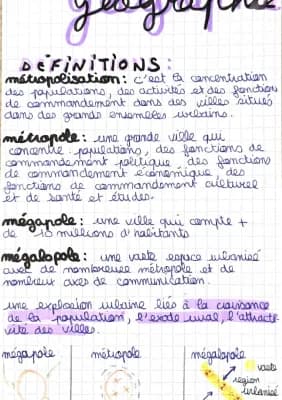 géographie
DÉFINITIONS :
métropolisation : c'est la concentration
des populations, des activités et des fonctions
de commandement dans des villes situés
dans des grands ensembles urbains.
métropole : une grande ville qui
concentre populations, des fonctions de
commandement politique, des fonctions
de commandement économique, des
fonctions de commandement culturel
et de santé et études.
mégapole : une ville qui compte +
de 10 millions d'habitants
mégalopole : une vaste espace urbanisé
avec de nombreuses métropole et de
nombreux axes de communication.
une explosion urbaine liés à la croissance
de la population, l'exode rural, l'attracti-
vité des villes.
mégapole métropole mégalopole
vaste
région
urbanisé